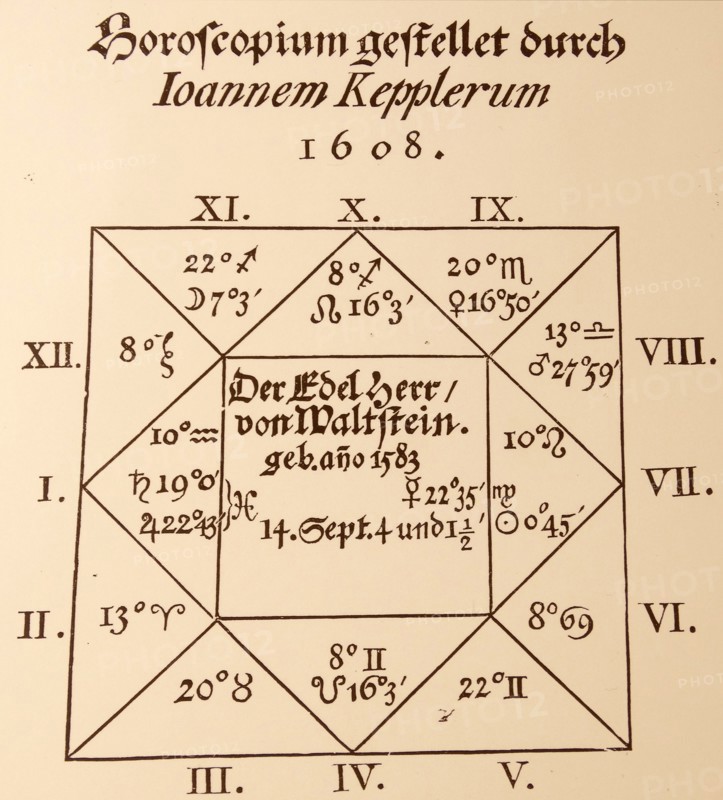 Horoscopium gestellet durch
Ioannem Kepplerum
1608.
XI. X. IX.
22° ♐ 8° ♐ 20° ♏
☽ 7° 3′ ☊ 16° 3′ ♀ 16° 50′
XII. 8° ♑ 13° ♎ VIII.
♂ 27° 59′
Der Edel Herr/
von Waltstein.
10° ♒ geb. año 1583 10° ♌
I. ♄ 19° 0′ ☿ 22° 35′ ♍ VII.
♃ 22° 43′ } ♓ 14. Sept. 4 und 1½′ ☉ 0° 45′
II. 13° ♈ 8° ♋ VI.
20° ♉ 8° ♊ 22° ♊
☋ 16° 3′
III. IV. V.
PHOTO12